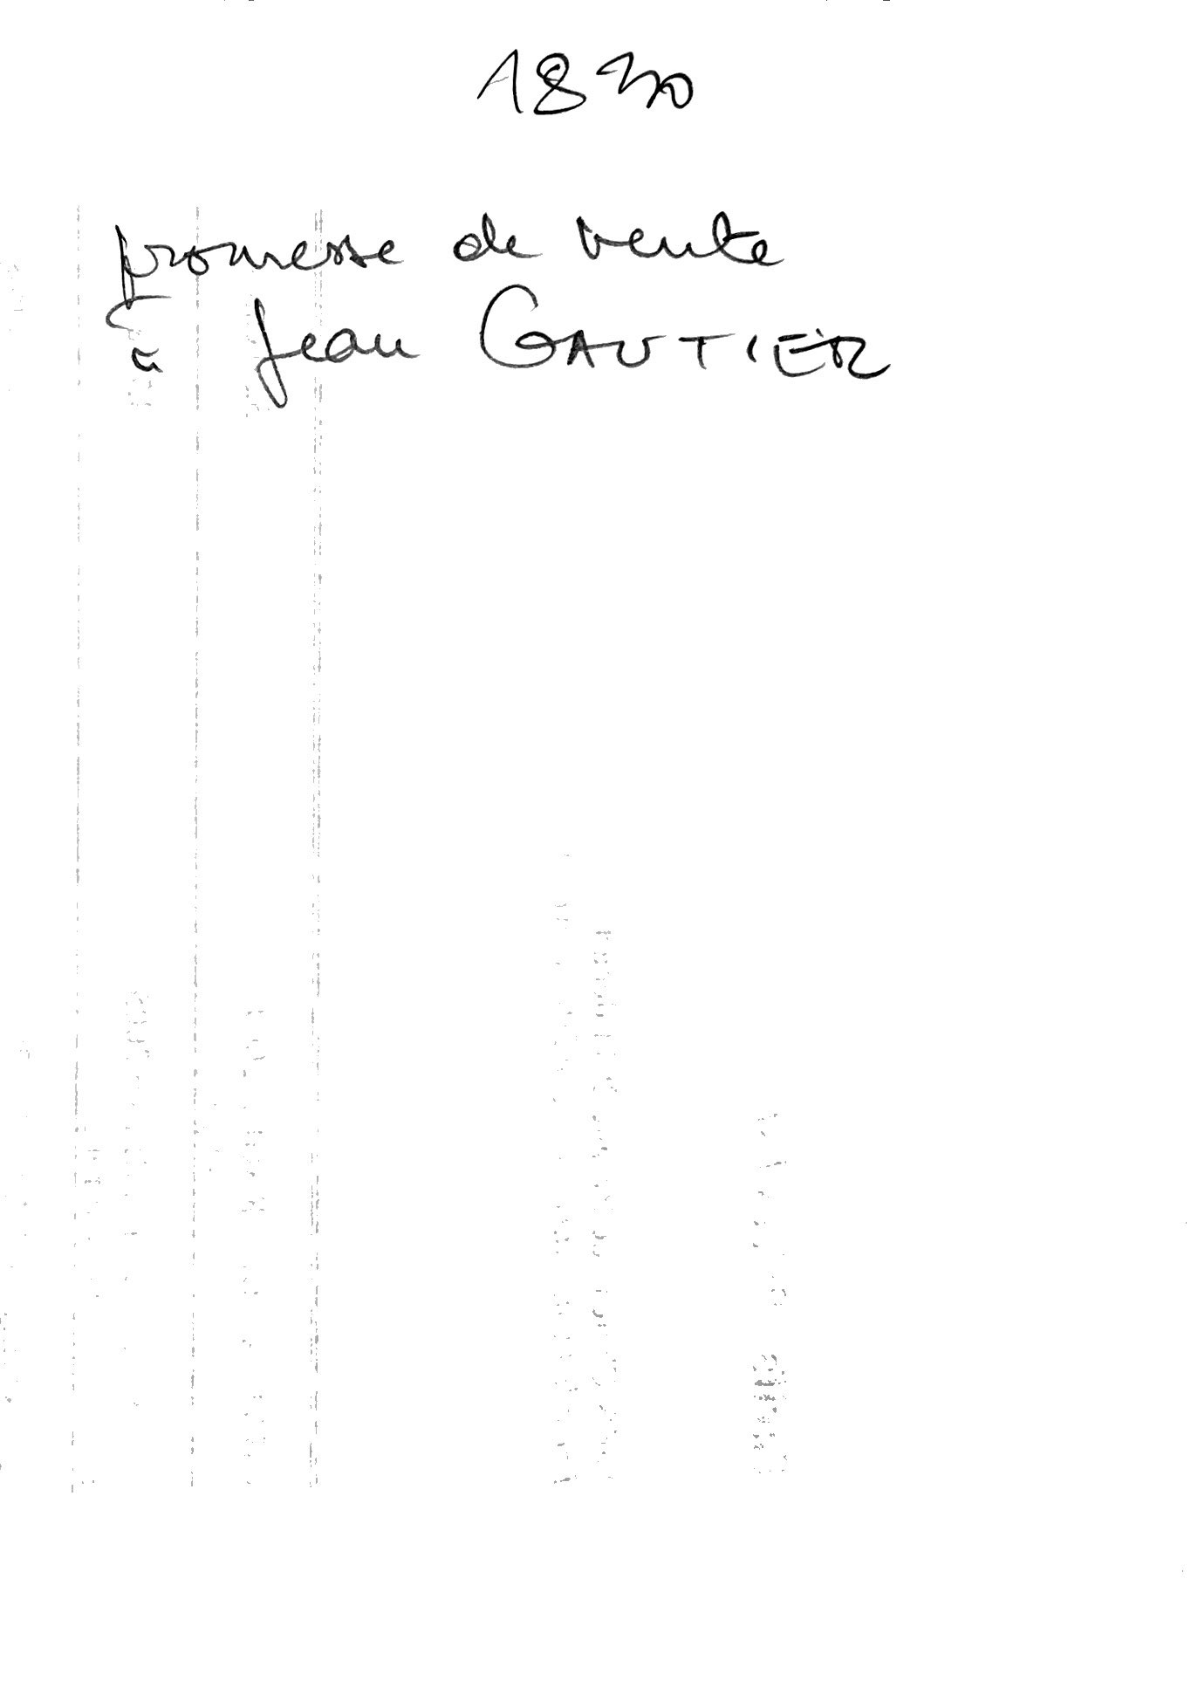 1830
promesse de vente
à Jean GAUTIER